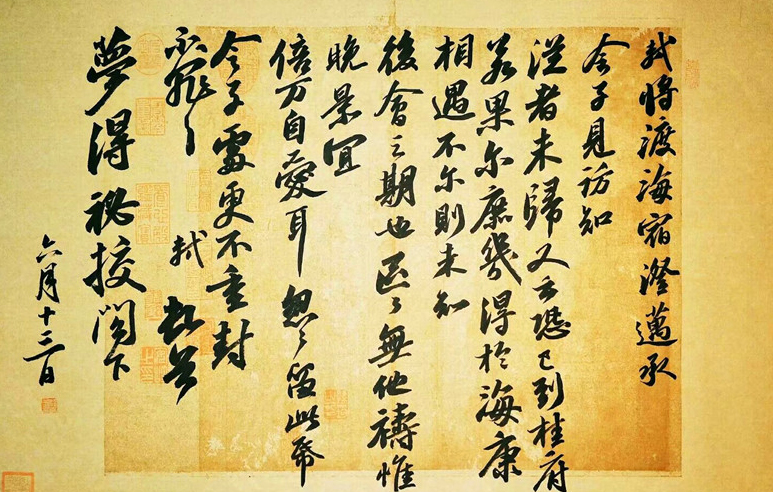 軾將渡海宿澄邁承
令子見訪知
從者未歸又云恐已到桂府
若果尔庶幾得於海康
相遇不尔則未知
後會之期也區〻無他禱惟
晚景宜
倍万自愛耳忽〻留此帋
令子處更不重封
不罪〻 軾頓首
夢得祕校閣下
六月十三日